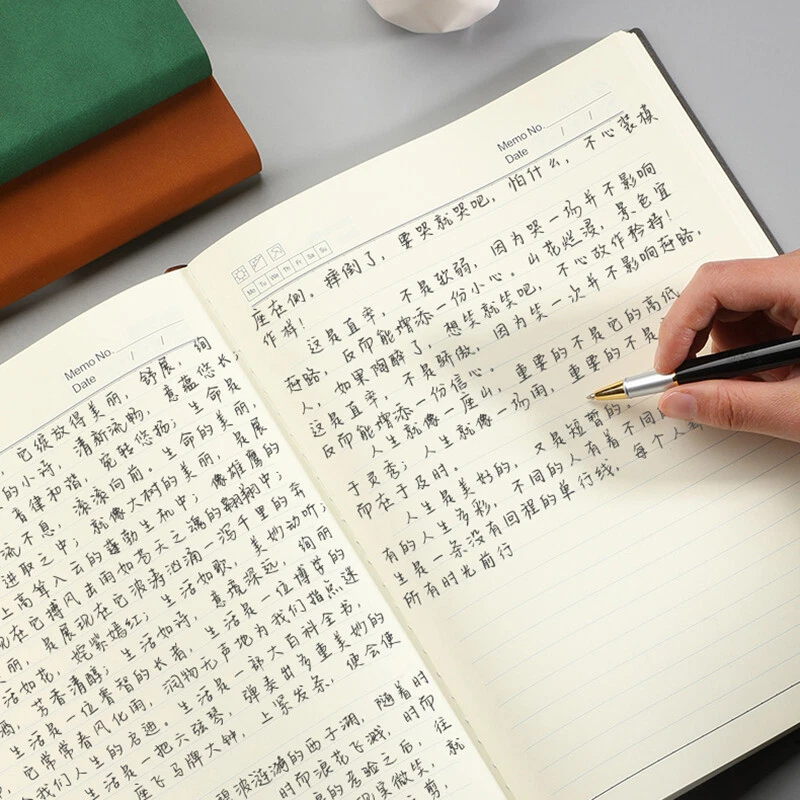 Memo No.
Date / /
它绽放得美丽，舒展，绚
的小诗，清新流畅，意蕴悠长；
音律和谐，宛转悠扬；生命是
流不息，滚滚向前。生命的美丽，
进取之中；就像大树的美丽，是展
上高耸入云的蓬勃生机中；像雄鹰的
现在它搏风击雨如苍天之魂的翱翔中；
丽，是展现在它波涛汹涌一泻千里的奔
活如花，姹紫嫣红；生活如歌，美妙动听；
酒，芳香清醇；生活如诗，意境深远，绚丽
生活是一位睿智的长者，生活是一位博学的
它常常春风化雨，润物无声地为我们指点迷
给我们人生的启迪。生活是一部大百科全书，
生活是一把六弦琴，弹奏出多重美妙的
座飞马牌大钟，上紧发条，便会使
碧波涟漪的西子湖，随着时
时而浪花飞溅，时而
的考验之后，往
微笑，就
Memo No.
Date / /
Mo Tu We Th Fr Sa Su
座在侧，摔倒了，要哭就哭吧，怕什么，不心装模
作样！
这是直率，不是软弱，因为哭一场并不影响
赶路，反而能增添一份小心。山花烂漫，景色宜
人，如果陶醉了，想笑就笑吧，不心故作矜持！
这是直率，不是骄傲，因为笑一次并不影响赶路，
反而能增添一份信心。
人生就像一座山，重要的不是它的高低
于灵秀；人生就像一场雨，重要的不是
而在于及时。
人生是美好的，又是短暂的，
有的人生多彩，不同的人有着不同
生是一条没有回程的单行线，每个人
所有时光前行